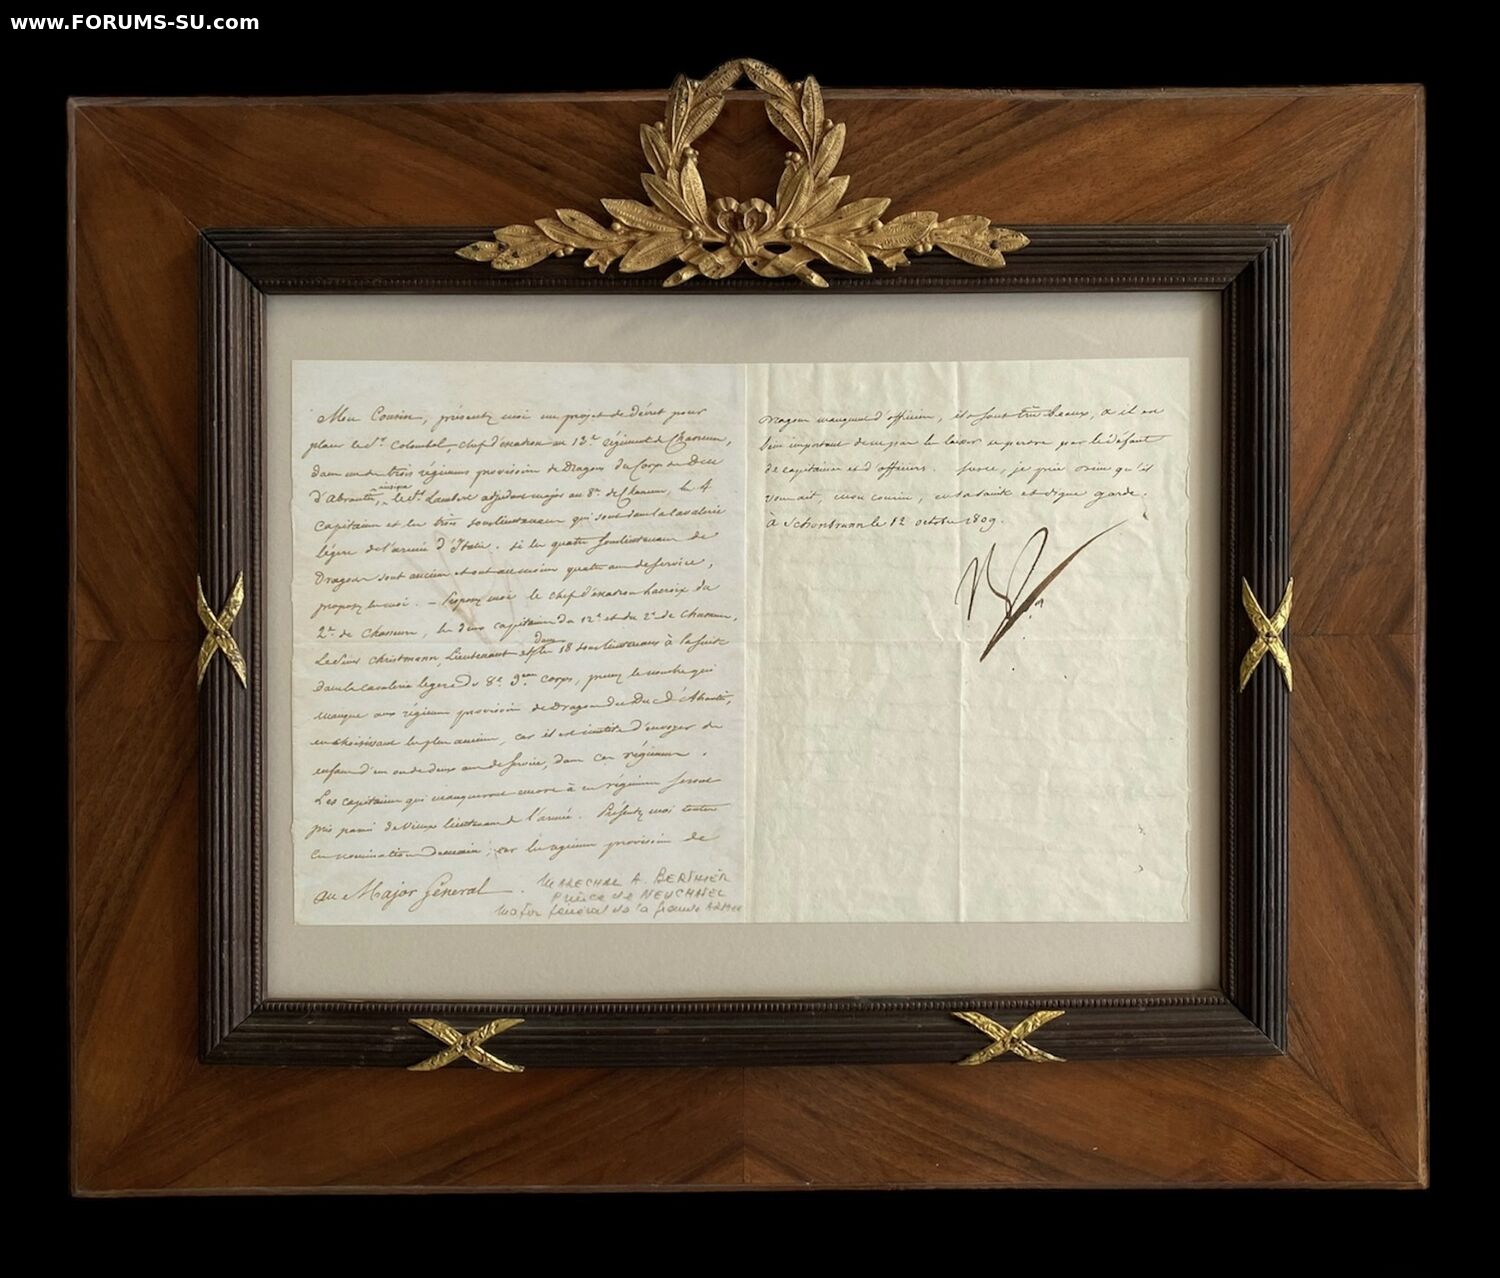 www.FORUMS-SU.com
Mon Cousin, présentez moi un projet de décret pour
placer le Sr. Colombel, chef d'escadron au 13e. régiment de Chasseurs,
dans un des trois régimens provisoires de Dragons du Corps du Duc
d'Abrantès, ainsique le Sr. Lambert adjudant major au 8e. de Chasseurs, les 4
capitaines et les trois souslieutenans qui sont dans la cavalerie
légère de l'armée d'Italie. Si les quatre souslieutenans de
Dragons sont anciens et ont au moins quatre ans de service,
proposez les moi. — Proposez moi le chef d'escadron Lacroix du
2e. de Chasseurs, les deux capitaines du 12e et du 2e de Chasseurs,
Le Sieur Christmann, Lieutenant et dans les 18 souslieutenans à la suite
dans la cavalerie légère du 8e corps, prenez le nombre qui
manque aux régimens provisoires de Dragons du Duc d'Abrantès,
en choisissant les plus anciens, car il est inutile d'envoyer des
enfans d'un ou de deux ans de service, dans ces régimens.
Les capitaines qui manqueront encore à ces régimens seront
pris parmi de vieux lieutenans de l'armée. Présentez moi toutes
les nominations demain; car les régimens provisoires de
au Major Général.
MARECHAL A. BERTHIER
Prince de NEUCHATEL
Major Général de la Grande ARMEE
Dragons manquent d'officiers, ils sont très beaux, & il est
bien important de ne pas les laisser se perdre par le défaut
de capitaines et d'officiers. Sur ce, je prie Dieu qu'il
vous ait, mon cousin, en sa sainte et digne garde.
à Schonbrunn le 12 octobre 1809.